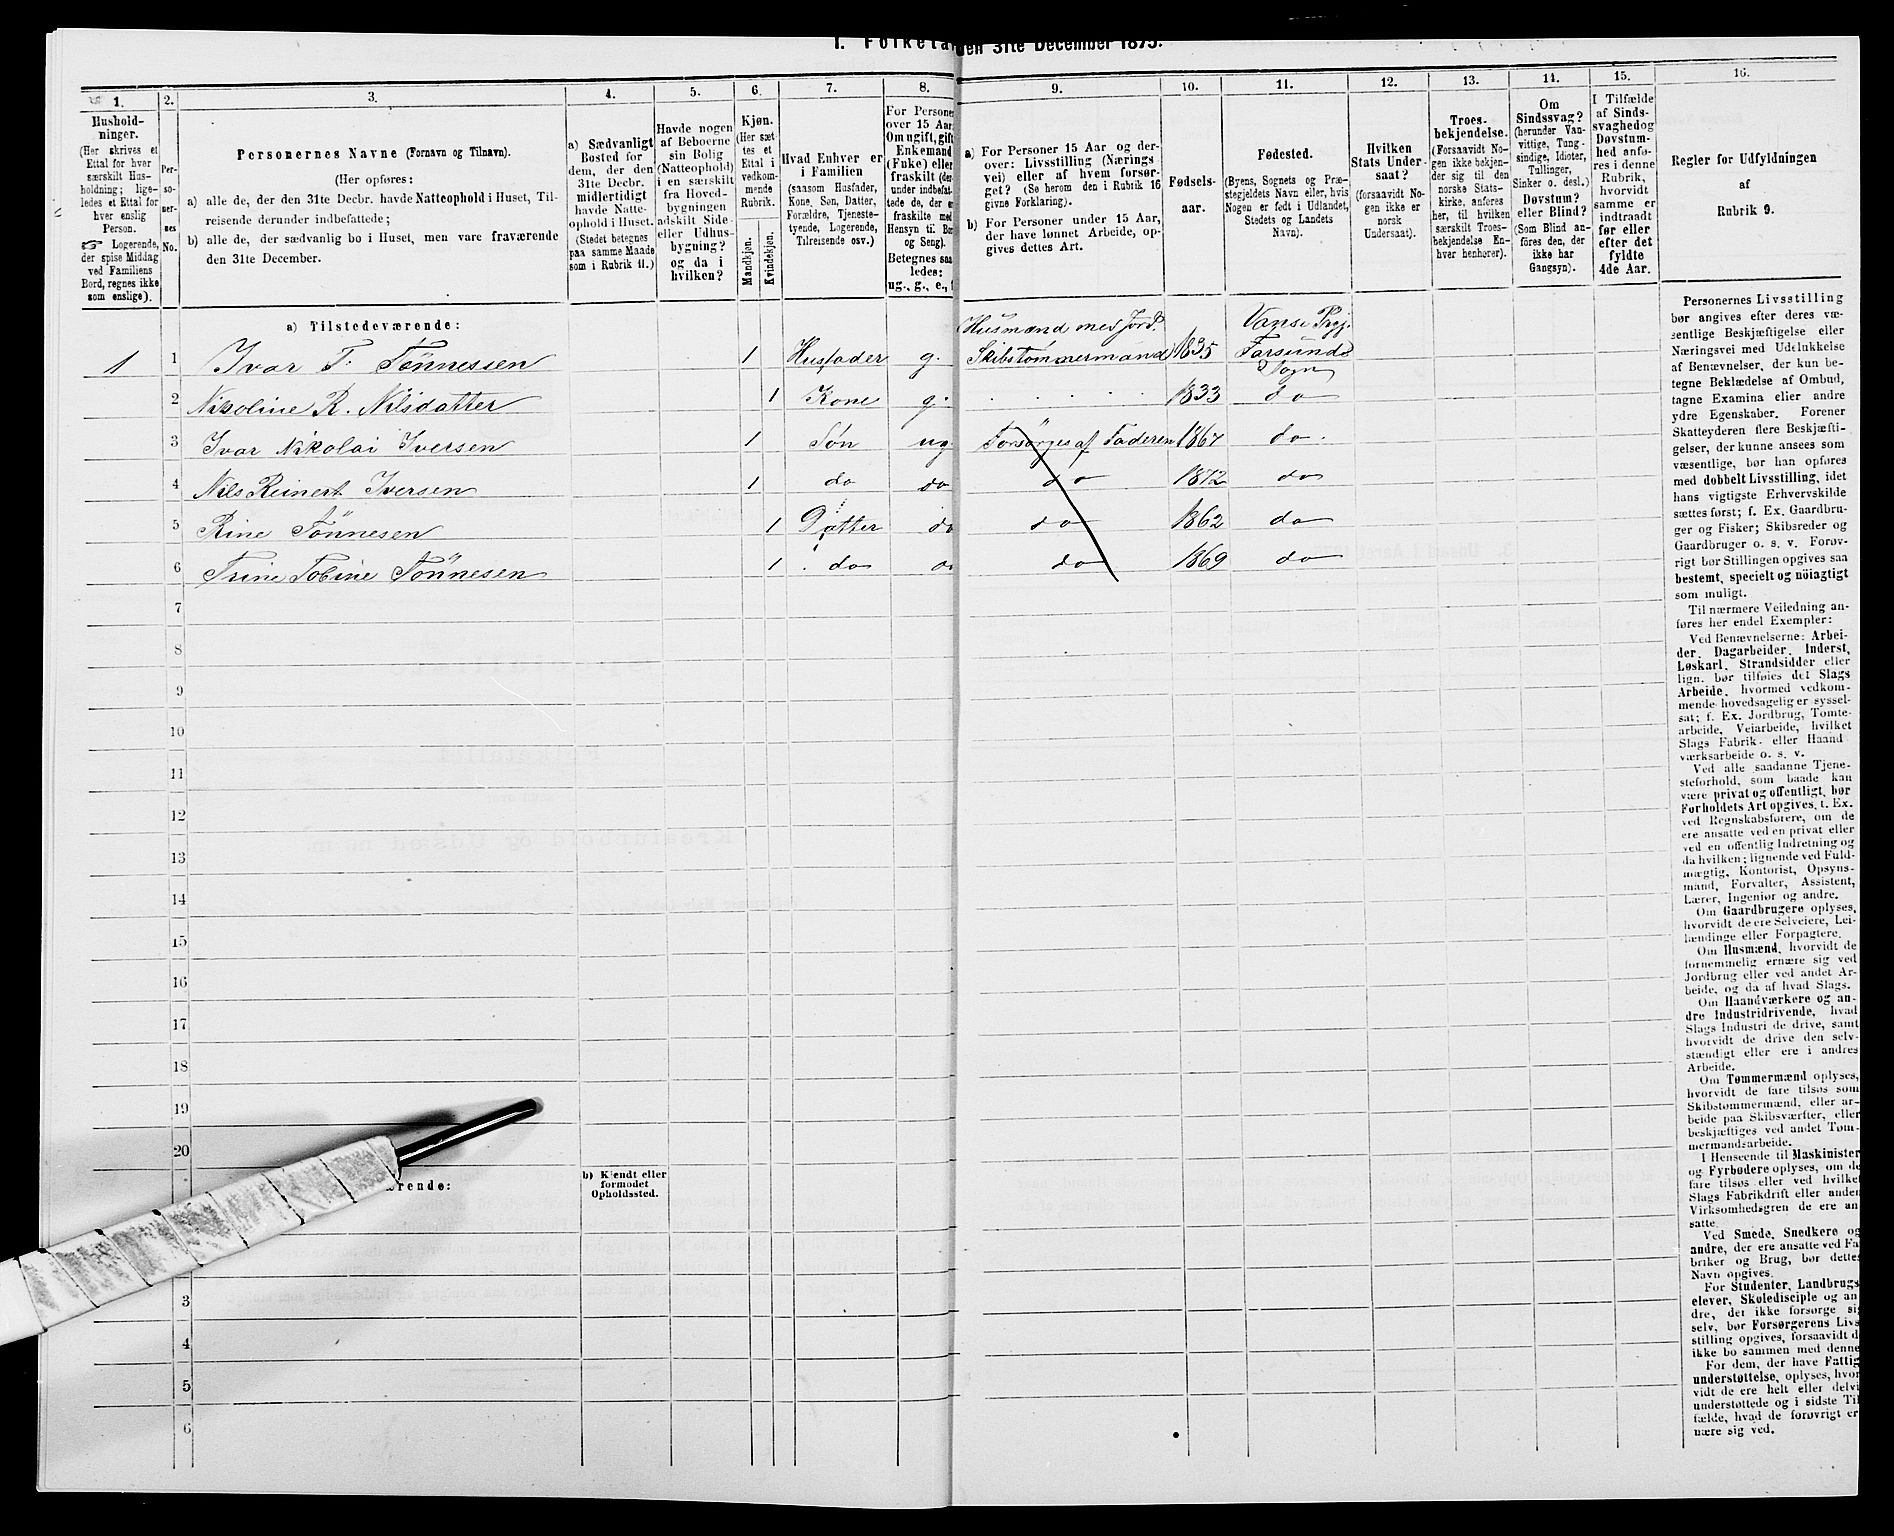 1. Folketal
den 31te December 1875.
1.
Hushold-
ninger.
(Her skrives et
Ettal for hver
særskilt Hus-
holdning; lige-
ledes et Ettal for
hver enslig
Person.
☞ Logerende,
der spise Middag
ved Familiens
Bord, regnes ikke
som enslige).
2.
Per-
so-
ner-
nes
No.
3.
Personernes Navne (Fornavn og Tilnavn).
(Her opføres:
a) alle de, der den 31te Decbr. havde Natteophold i Huset, Til-
reisende derunder indbefattede;
b) alle de, der sædvanlig bo i Huset, men vare fraværende
den 31te December.
4.
a) Sædvanligt
Bosted for
dem, der den
31te Decbr.
midlertidigt
havde Natte-
ophold i Huset.
(Stedet betegnes
paa samme Maade
som i Rubrik 11.)
5.
Havde nogen
af Beboerne
sin Bolig
(Natteophold)
i en særskilt
fra Hoved-
bygningen
adskilt Side-
eller Udhus-
bygning?
og da i
hvilken?
6.
Kjøn.
(Her sæt-
tes et
Ettal i
vedkom-
mende
Rubrik.
Mandkjøn.
Kvindekjøn.
7.
Hvad Enhver er
i Familien
(saasom Husfader,
Kone, Søn, Datter,
Forældre, Tjeneste-
tyende, Logerende,
Tilreisende osv.)
8.
For Persone
over 15 Aar
Om ugift, gift
Enkemand
(Enke) eller
fraskilt (der-
under indbefat-
tede de, der e
fraskilte med
Hensyn til Bo
og Seng).
Betegnes saa
ledes:
ug., g., e.,
9.
a) For Personer 15 Aar og der-
over: Livsstilling (Nærings
vei) eller af hvem forsør-
get? (Se herom den i Rubrik 16
givne Forklaring).
b) For Personer under 15 Aar,
der have lønnet Arbeide, op-
gives dettes Art.
10.
Fødsels-
aar.
11.
Fødested.
(Byens, Sognets og Præ-
stegjeldets Navn eller, hvis
Nogen er født i Udlandet,
Stedets og Landets
Navn).
12.
Hvilken
Stats Under-
saat?
(forsaavidt No-
gen ikke er
norsk
Undersaat).
13.
Troes-
bekjendelse.
(Forsaavidt No-
gen ikke bekjen-
der sig til den
norske Stats-
kirke, anføres
her, til hvilken
særskilt Troes-
bekjendelse En-
hver henhører).
14.
Om
Sindssvag?
(herunder Van-
vittige, Tung-
sindige, Idioter,
Tullinger,
Sinker o. desl.)
Døvstum?
eller Blind?
(Som Blind an-
føres den, der
ikke har
Gangsyn).
15.
I Tilfælde
af Sinds-
svaghed og
Døvstum-
hed anfø-
res i denne
Rubrik,
hvorvidt
samme er
indtraadt
før eller
efter det
fyldte
4de Aar.
16.
Regler for Udfyldningen
af
Rubrik 9.
a) Tilstedeværende:
1 1 Ivar T. Tönnessen 1 Husfader g. Husmand med Jord. Skibstømmermand 1835 Vanse Prgj. Farsunds Sogn
2 Nikoline R. Nilsdatter 1 Kone g. 1833 do
3 Ivar Nikolai Iversen 1 Søn ug. Forsørges af Faderen 1867 do.
4 Nils Reinert Iversen 1 do do do 1872 do
5 Rine Tönnesen 1 Datter do do 1862 do
6 Trine Tobine Tönnesen 1 do do 1869 do
7
8
9
10
11
12
13
14
15
16
17
18
19
20
rende:
b) Kjendt eller
formodet
Opholdssted.
3
4
5
6
Personernes Livsstilling
bør angives efter deres væ-
sentlige Beskjæftigelse eller
Næringsvei med Udelukkelse
af Benævnelser, der kun be-
tegne Beklædelse af Ombud,
tagne Examina eller andre
ydre Egenskaber. Forener
Skatteyderen flere Beskjæfti-
gelser, der kunne ansees som
væsentlige, bør han opføres
med dobbelt Livsstilling, idet
hans vigtigste Erhvervskilde
sættes først; f. Ex. Gaardbru-
ger og Fisker; Skibsreder og
Gaardbruger o. s. v. Forøv-
rigt bør Stillingen opgives saa
bestemt, specielt og nöiagtigt
som muligt.
Til nærmere Veiledning an-
føres her endel Exempler:
Ved Benævnelserne: Arbei-
der, Dagarbeider, Inderst,
Løskarl, Strandsidder eller
lign. bør tilføies det Slags
Arbeide, hvormed vedkom-
mende hovedsagelig er syssel-
sat; f. Ex. Jordbrug, Tomte-
arbeide, Veiarbeide, hvilket
Slags Fabrik- eller Haand
værksarbeide o. s. v.
Ved alle saadanne Tjene-
steforhold, som baade kan
være privat og offentligt, bør
Forholdets Art opgives, t. Ex.
ved Regnskabsførere, om de
ere ansatte ved en privat eller
ved en offentlig Indretning og
da hvilken; lignende ved Fuld-
mægtig, Kontorist, Opsyns-
mand, Forvalter, Assistent,
Lærer, Ingeniør og andre.
Om Gaardbrugere oplyses,
hvorvidt de ere Selveiere, Lei-
lændinge eller Forpagtere.
Om Husmænd, hvorvidt de
fornemmelig ernære sig ved
Jordbrug eller ved andet Ar-
beide, og da af hvad Slags.
Om Haandværkere og an-
dre Industridrivende, hvad
Slags Industri de drive, samt
hvorvidt de drive den selv-
stændigt eller ere i andres
Arbeide.
Om Tømmermænd oplyses,
hvorvidt de fare tilsøs som
Skibstømmermænd, eller ar-
beide paa Skibsværfter, eller
beskjæftiges ved andet Tøm-
mermandsarbeide.
I Henseende til Maskinister
og Fyrbødere oplyses, om de
fare tilsøs eller ved hvilket
Slags Fabrikdrift eller anden
Virksomhedsgren de ere an
satte.
Ved Smede, Snedkere og
andre, der ere ansatte ved Fa
briker og Brug, bør dettes
Navn opgives.
For Studenter, Landbrugs
elever, Skoledisciple og an
dre, det ikke forsørge sig
selv, bør Forsørgerens Livs
stilling opgives, forsaavidt d
ikke bo sammen med denne
For dem, der have Fattig
understøttelse, oplyses, hvor
vidt de ere helt eller delvi
understøttede og i sidste Til
fælde, hvad de forøvrigt er
nære sig ved.